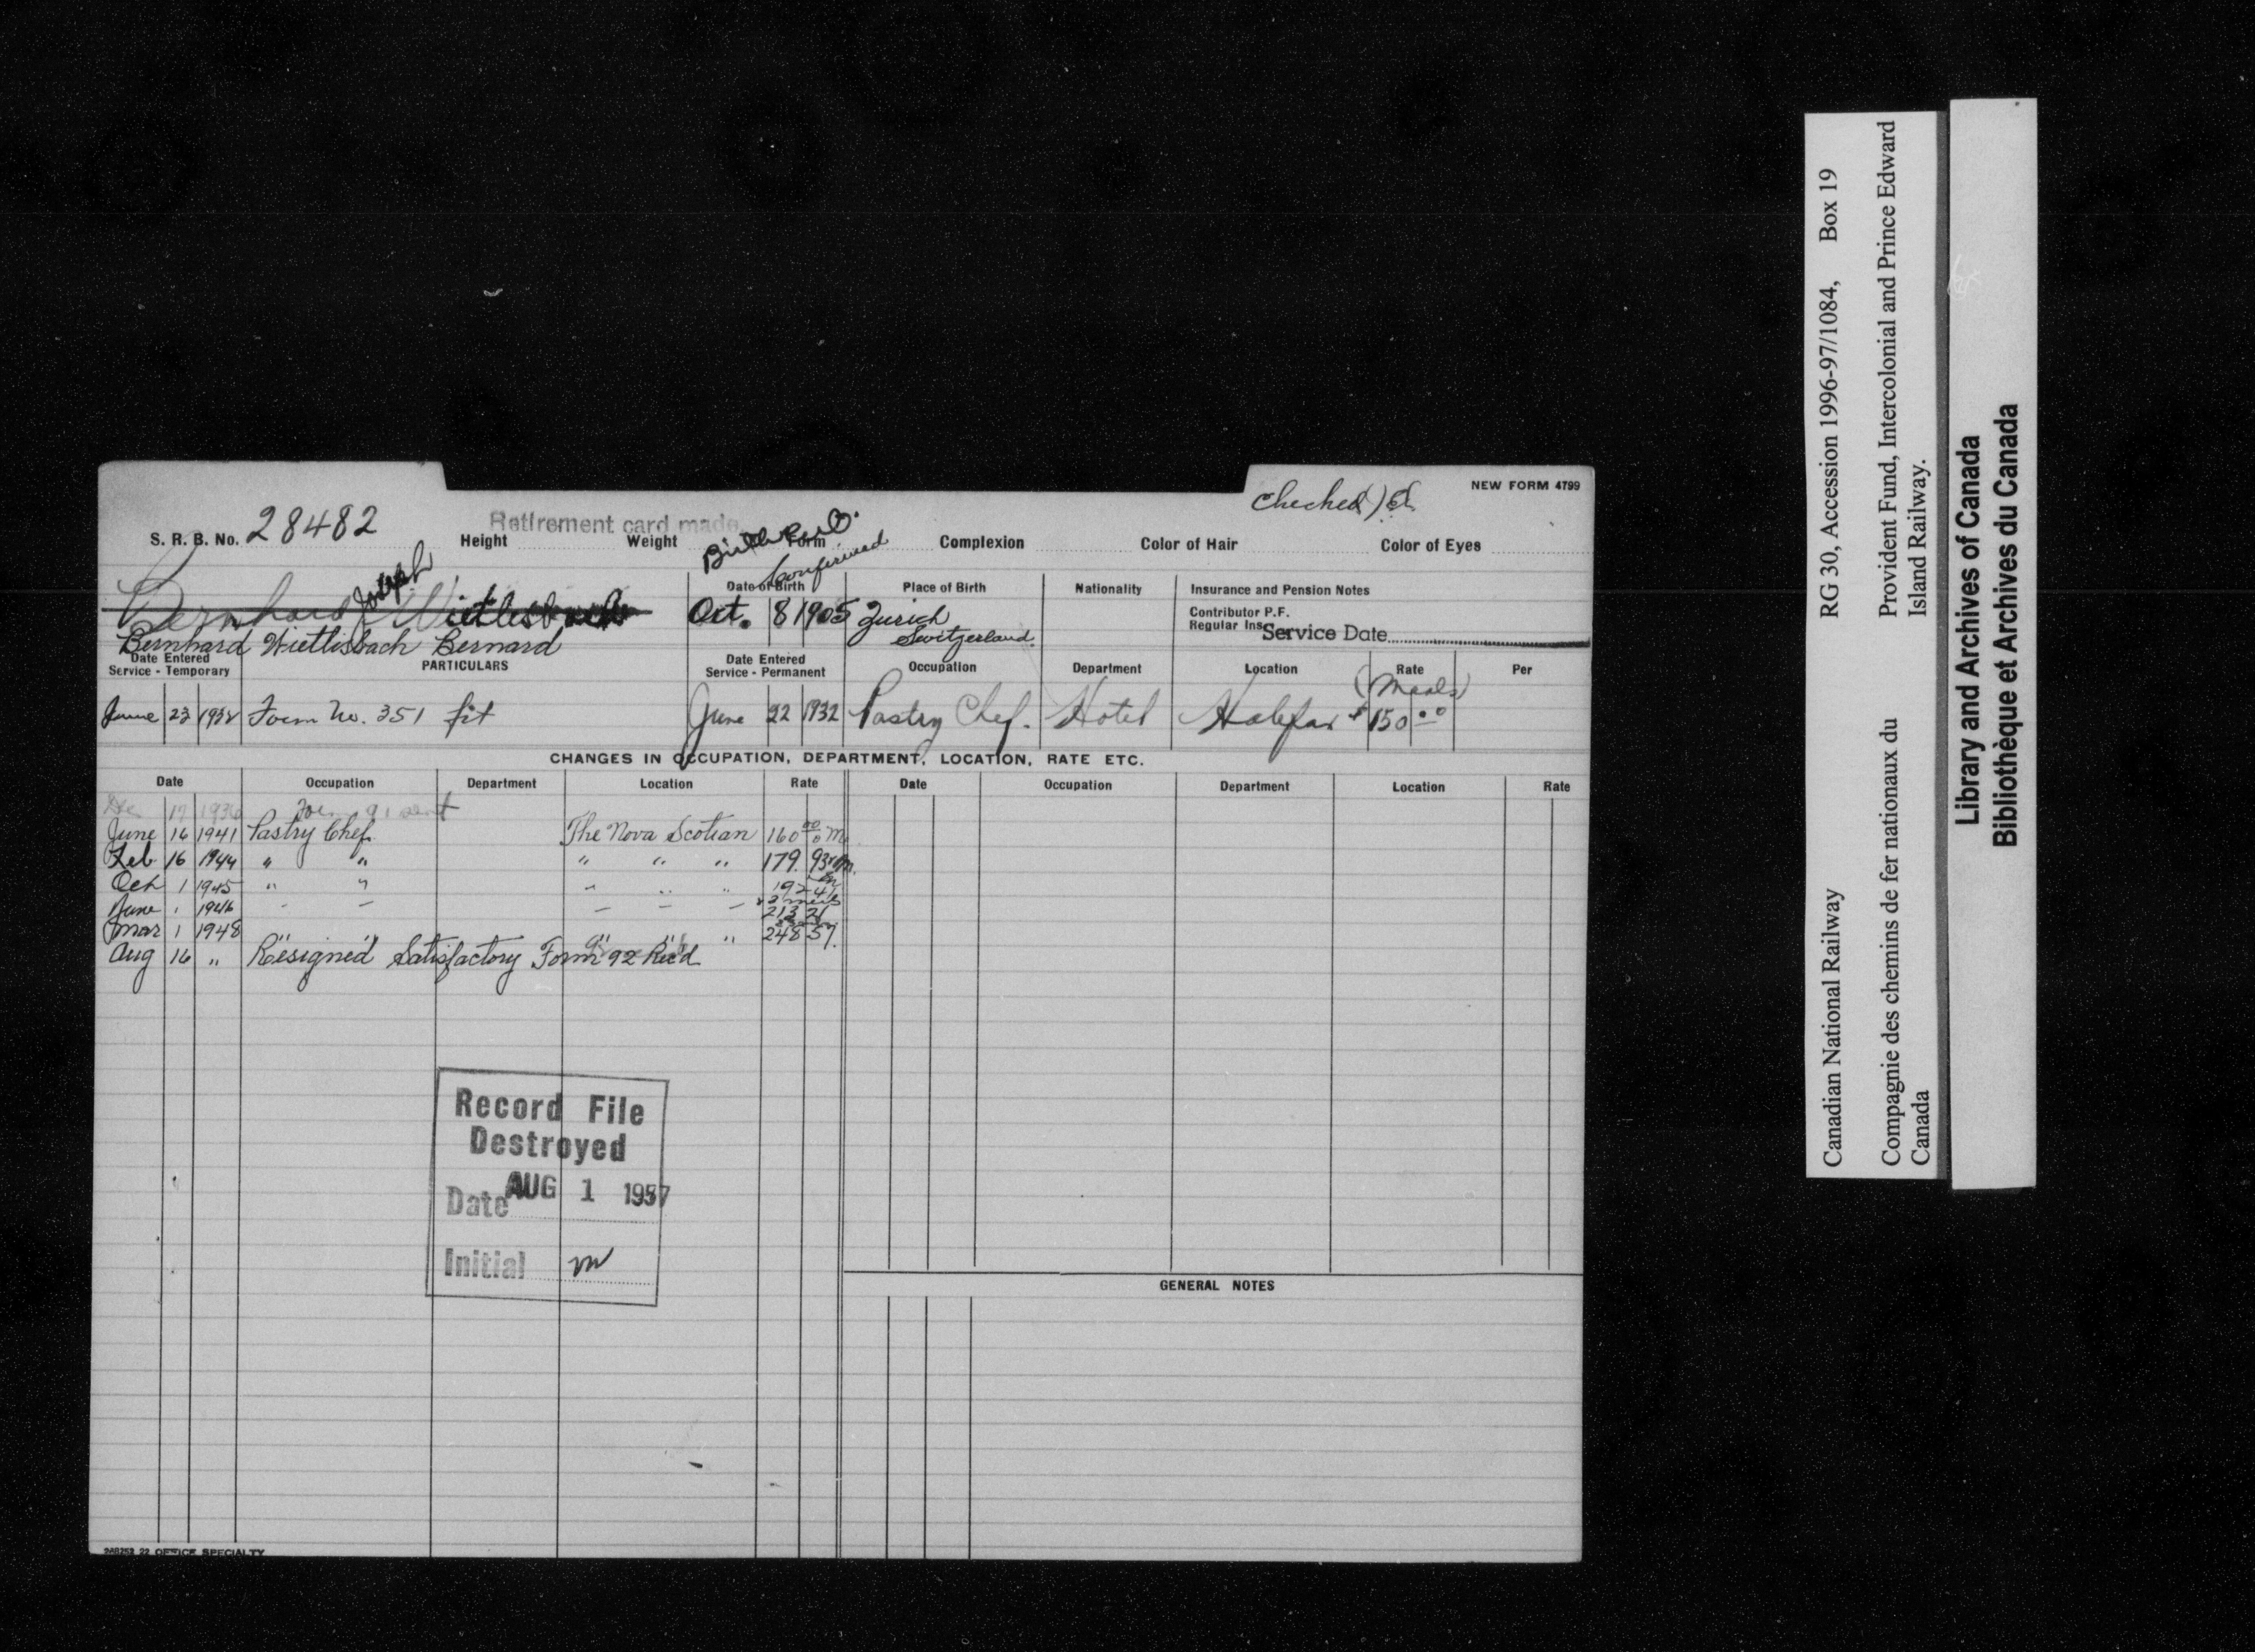 NEW FORM 4799
checked
S. R. B. No. 28482
Retirement card made
Height Weight Form Complexion Color of Hair Color of Eyes
Birth Cert. Confirmed
Date of Birth Place of Birth Nationality Insurance and Pension Notes
Bernhard Joseph Wietlisbach
Oct. 8 1905 Zurich Switzerland
Contributor P.F.
Regular Ins. Service Date
Bernhard Wietlisbach Bernard
Date Entered Service - Temporary PARTICULARS Date Entered Service - Permanent Occupation Department Location Rate Per
June 23 1932 Form No. 351 fit June 22 1932 Pastry Chef. Hotel Halifax $150.00 (Meals)
CHANGES IN OCCUPATION, DEPARTMENT, LOCATION, RATE ETC.
Date Occupation Department Location Rate Date Occupation Department Location Rate
Dec 17 1936 Form 91 sent
June 16 1941 Pastry Chef The Nova Scotian 160 00 M
Feb 16 1944 " " " " " 179.93
Oct 1 1945 " " " " " 192 41
June 1 1946 - - - - - 213 21
Mar 1 1948 " " " " " 248 57
Aug 16 " Resigned Satisfactory Form 92 Rec'd
Record File
Destroyed
Date AUG 1 1957
Initial
GENERAL NOTES
OFFICE SPECIALTY
Canadian National Railway RG 30, Accession 1996-97/1084, Box 19
Compagnie des chemins de fer nationaux du Canada
Provident Fund, Intercolonial and Prince Edward Island Railway.
Library and Archives of Canada
Bibliothèque et Archives du Canada